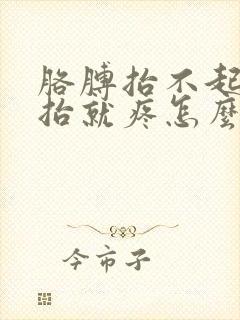 胳膊抬不起
抬就疼怎麼
今市子